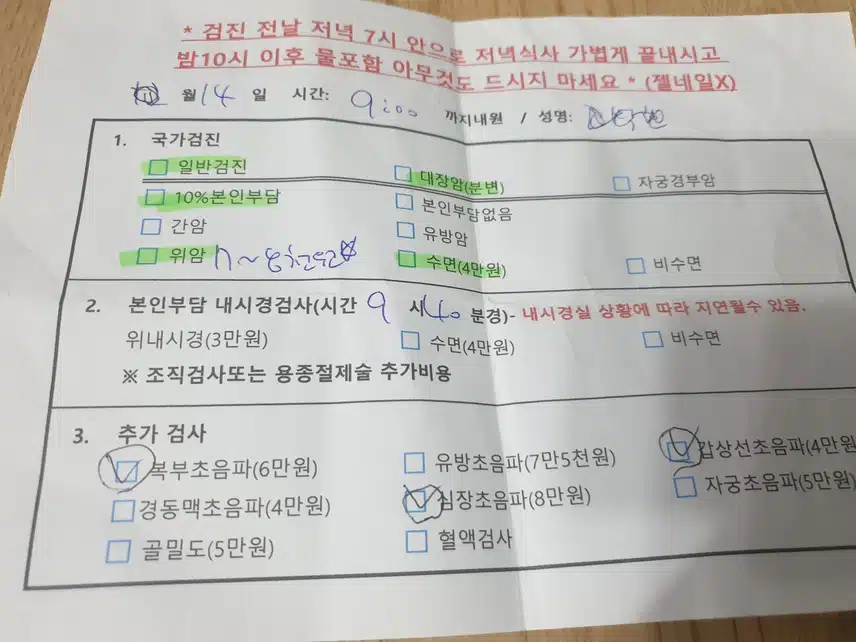 * 검진 전날 저녁 7시 안으로 저녁식사 가볍게 끝내시고
밤10시 이후 물포함 아무것도 드시지 마세요 * (젤네일X)
월 14 일 시간: 9:00 까지내원 / 성명:
1. 국가검진
일반검진 대장암(분변) 자궁경부암
10%본인부담 본인부담없음
간암 유방암
위암 수면(4만원) 비수면
2. 본인부담 내시경검사(시간 9 시 40 분경)- 내시경실 상황에 따라 지연될수 있음.
위내시경(3만원) 수면(4만원) 비수면
※ 조직검사또는 용종절제술 추가비용
3. 추가 검사
복부초음파(6만원) 유방초음파(7만5천원) 갑상선초음파(4만원
경동맥초음파(4만원) 심장초음파(8만원) 자궁초음파(5만원)
골밀도(5만원) 혈액검사